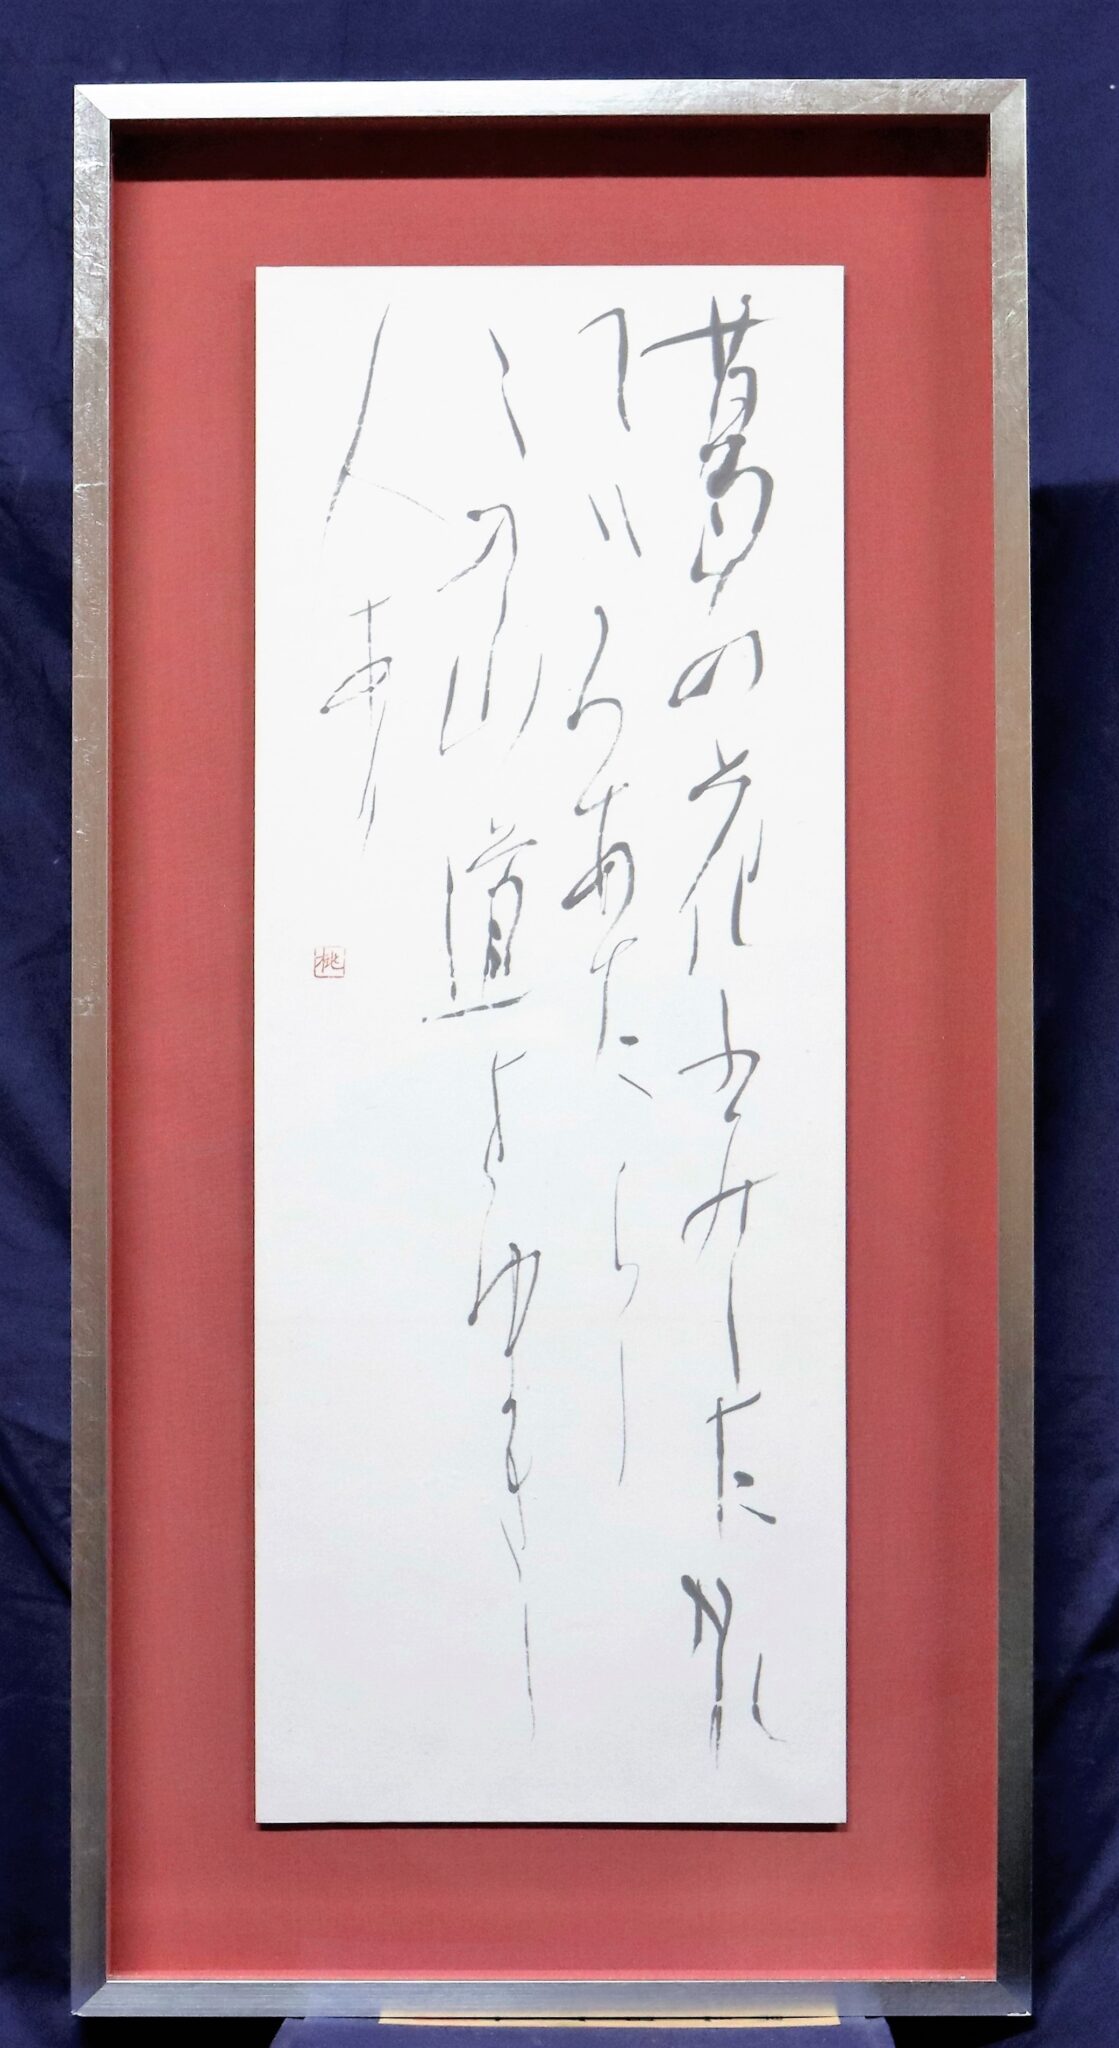 葛の花ふみしだかれ
て いろあたらし
この山道をゆきし
人あり
桃